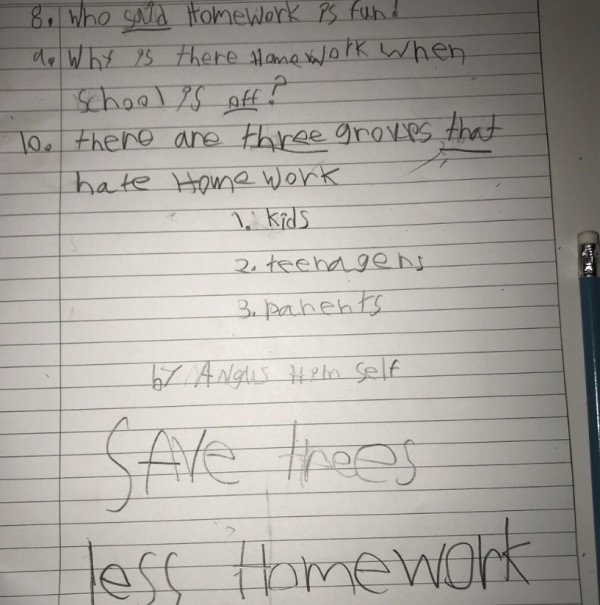 8. Who said Homework is fun!
9. Why is there Homework when
school is off?
10. there are three groups that
hate Homework
1. kids
2. teenagers
3. parents
by Angus Him self
SAVe trees
less Homework